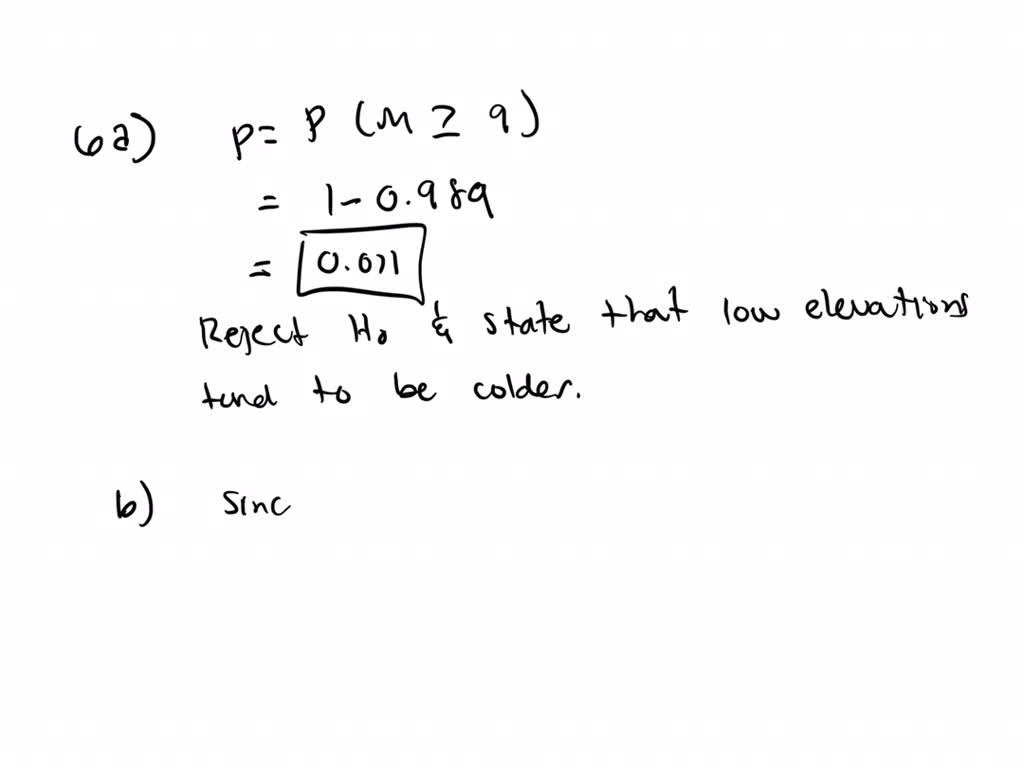 6a) p= P (M ≥ 9)
= 1- 0.989
= 0.011
Reject H₀ & state that low elevations
tend to be colder.
b) Sinc